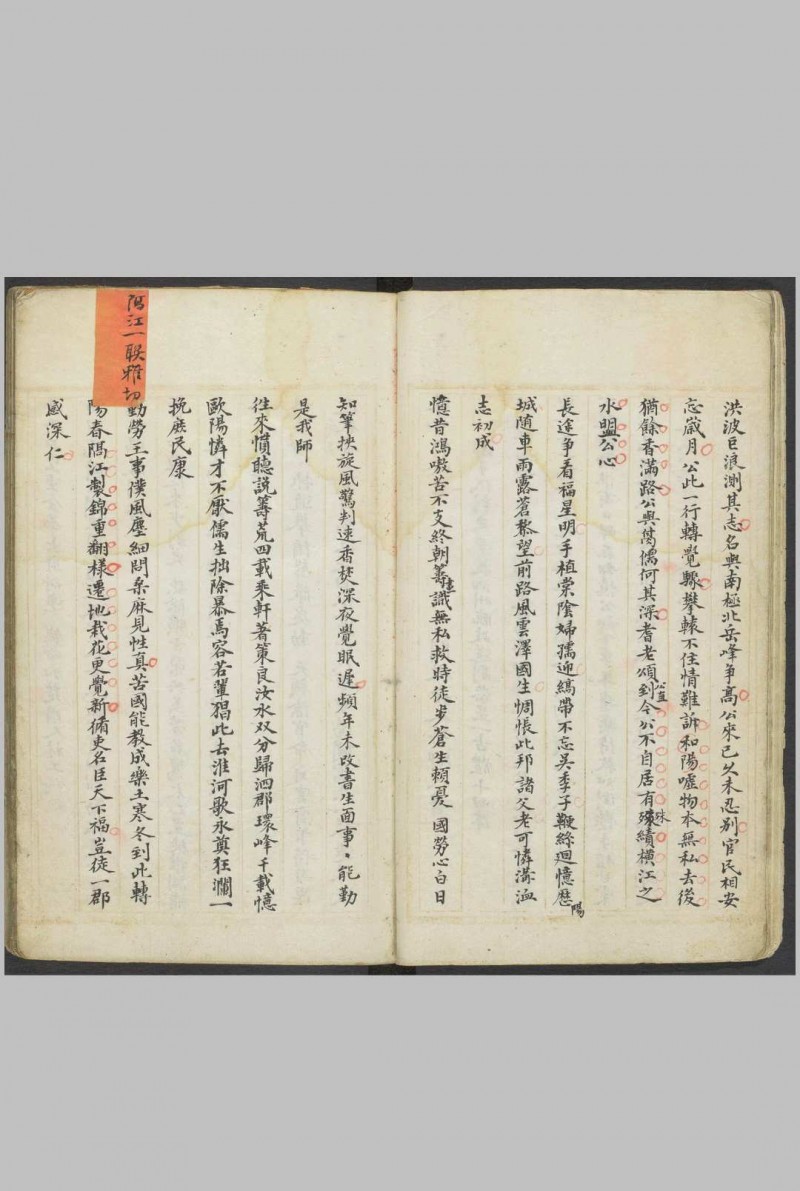 洪波巨浪測其志名與南極北岳峰爭高公來已久未忍別官民相安
忘歲月公此一行轉覺驟攀轅不住情難訴和陽噓物本無私去後
猶餘香滿路公與萬儒何其深耆老頌到今公不自居有殊績橫江之
水盟公心
長途爭看福星明手植棠陰婦孺迎縞帶不忘吳季子鞭絲迴憶歷陽
城隨車雨露蒼黎望前路風雲澤國生惆悵此邦諸父老可憐溝洫
志初成
憶昔鴻嗷苦不支終朝籌畫識無私救時徒步蒼生賴憂國勞心白日
知筆挾旋風驚判速香焚深夜覺眠遲頻年未改書生面事、能勤
是我師
往來慣聽說籌荒四載乘軒著策良汝水双分歸泗郡環峰千載憶
歐陽憐才不厭儒生拙除暴焉容若輩猖此去淮河歌永奠狂瀾一
挽庶民康
勤勞王事僕風塵細問桑麻見性真苦國能教成樂土寒冬到此轉
陽春隅江製錦重翻樣遷地栽花更覺新循吏名臣天下福豈徒一郡
感深仁
隅江一聯雅切